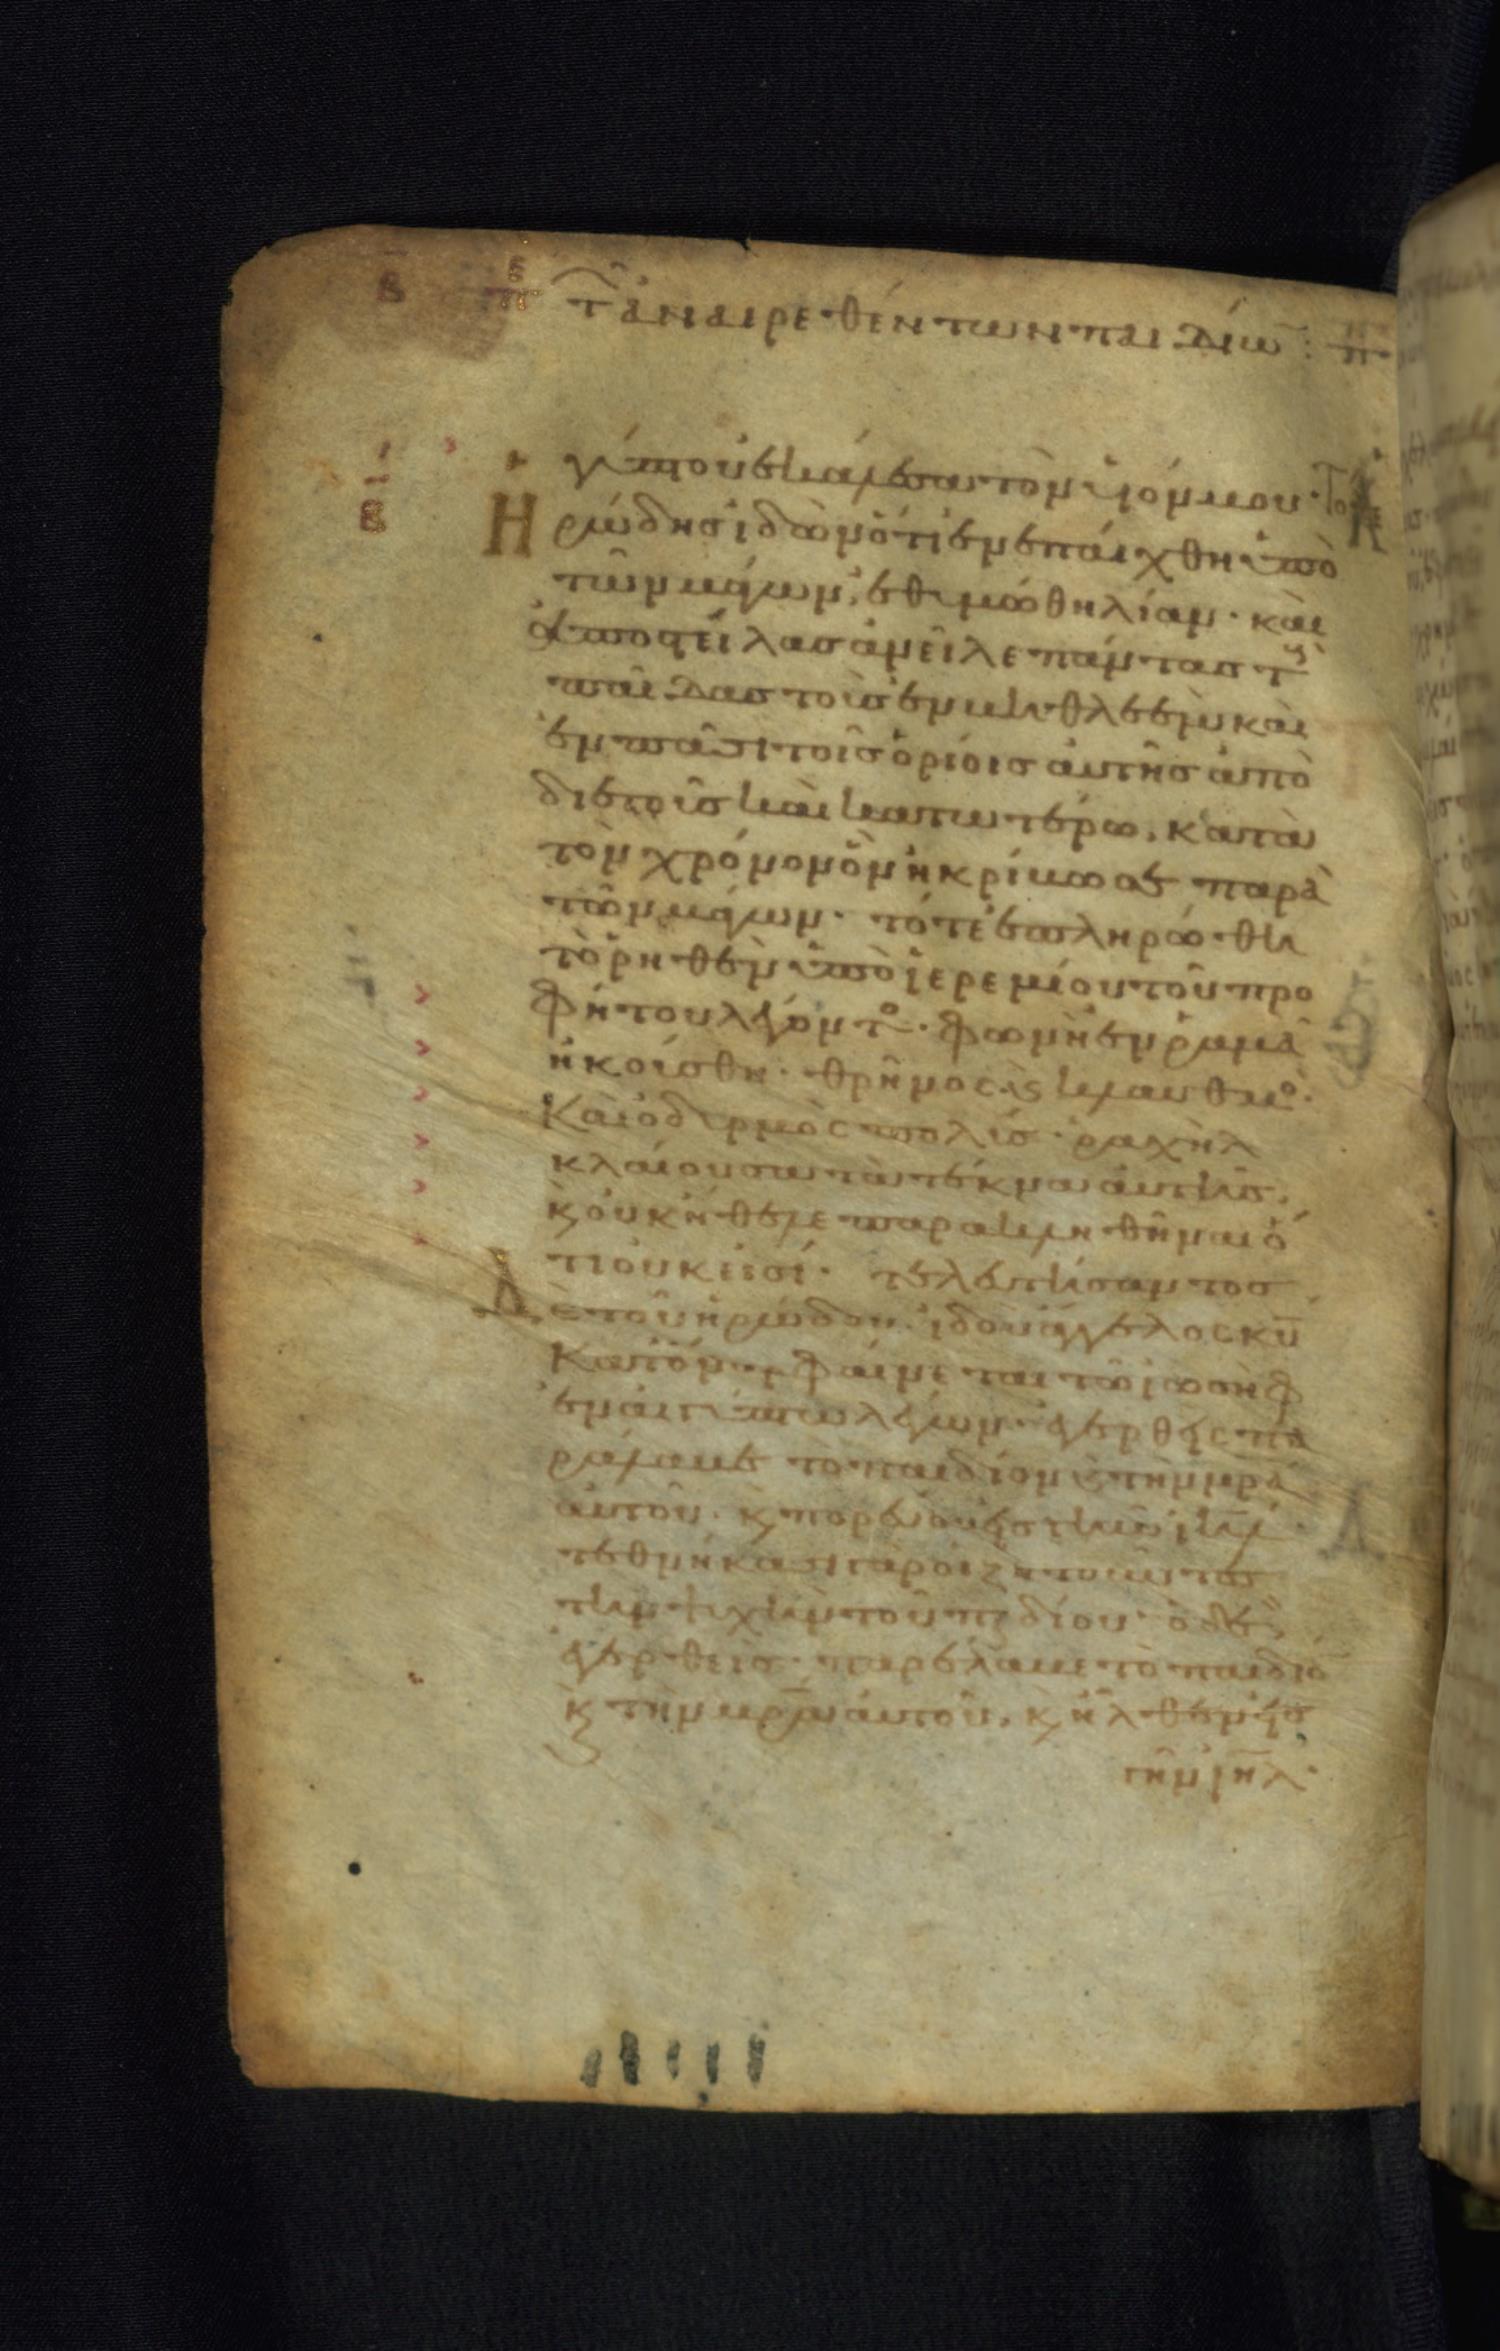 τ ἀναιρεθέντων παιδίω :
γύπτου ἐκάλεσα τὸν υἱόν μου· Το
Ηρώδης ἰδὼν ὅτι ἐνεπαίχθη ὑπὸ
τῶν μάγων, ἐθυμώθη λίαν· καὶ
ἀποστείλας ἀνεῖλε πάντας τ
παῖδας τοὺς ἐν βηθλεὲμ καὶ
ἐν πᾶσι τοῖς ὁρίοις αὐτῆς ἀπὸ
διετοῦς καὶ κατωτέρω, κατὰ
τὸν χρόνον ὃν ἠκρίβωσε παρὰ
τῶν μάγων· τότε ἐπληρώθη
τὸ ῥηθὲν ὑπὸ ἱερεμίου τοῦ προ
φήτου λέγοντο· φωνὴ ἐν ῥαμᾶ
ἠκούσθη· θρῆνος κ κλαυθμο·
Καὶ ὀδυρμὸς πολύς· ῥαχὴλ
κλαίουσα τὰ τέκνα αὐτῆς,
κ οὐκ ἤθελε παρακληθῆναι ὅ
τι οὐκ εἰσί· τελευτήσαντος
Δὲ τοῦ ἡρώδου· ἰδοὺ ἄγγελος κυ
Κατ ὄναρ φαίνεται τῶ ἰωσὴφ
ἐν αἰγύπτω λέγων· ἐγερθεὶς πα
ράλαβε τὸ παιδίον κ τὴν μρα
αὐτοῦ· κ πορεύου εἰς γῆν ιηλ·
τεθνήκασι γὰρ οἱ ζητοῦντες
τὴν ψυχὴν τοῦ πεδίου· ὁ δὲ
ἐγερθεὶς· παρέλαβε τὸ παιδίο
κ τὴν μρα αὐτοῦ, κ ἦλθεν εἰς
γῆν ιηλ·